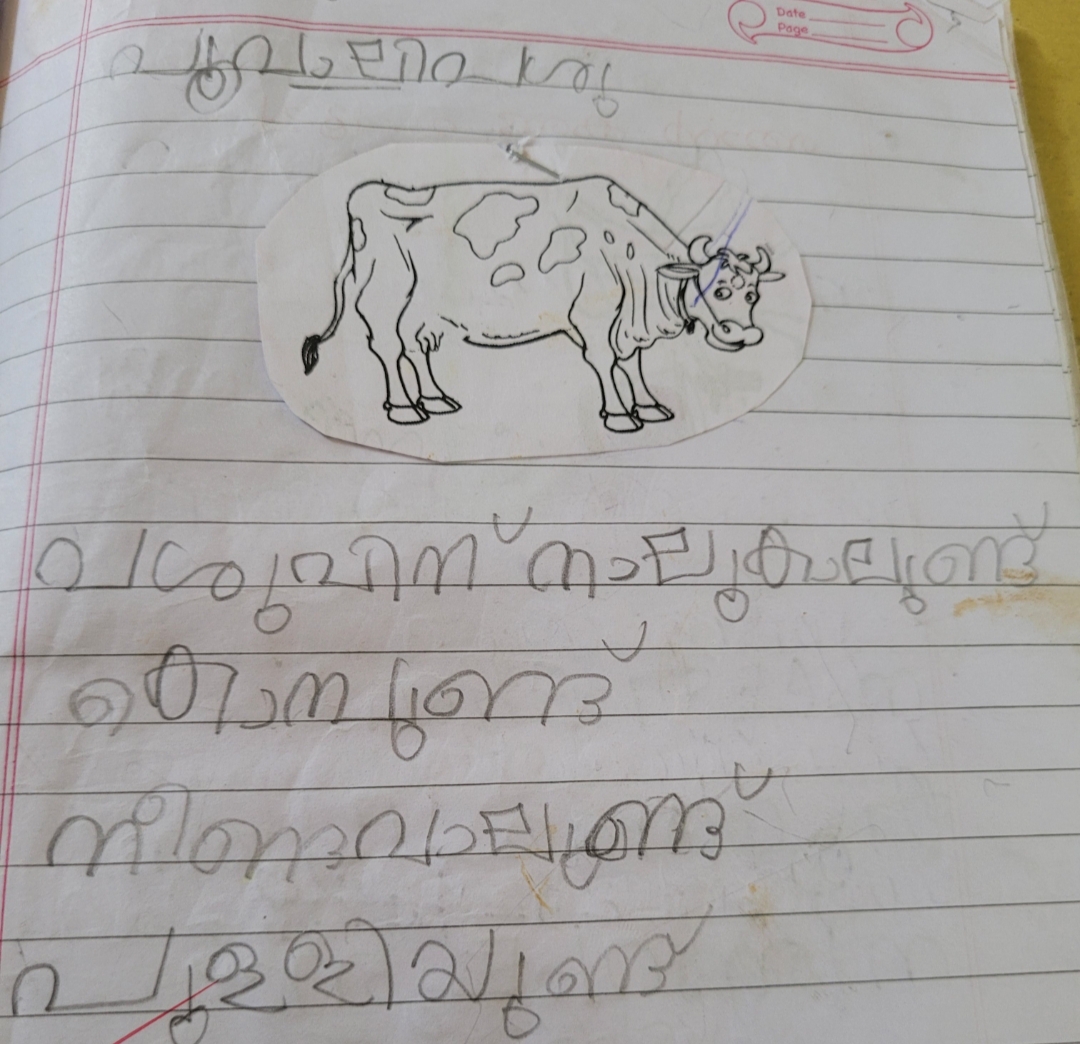 Date
Page
പൂവാലി
പശുവിന് നാലുകാലുണ്ട്
കൊമ്പുണ്ട്
നീണ്ടവാലുണ്ട്
പുള്ളിയുണ്ട്